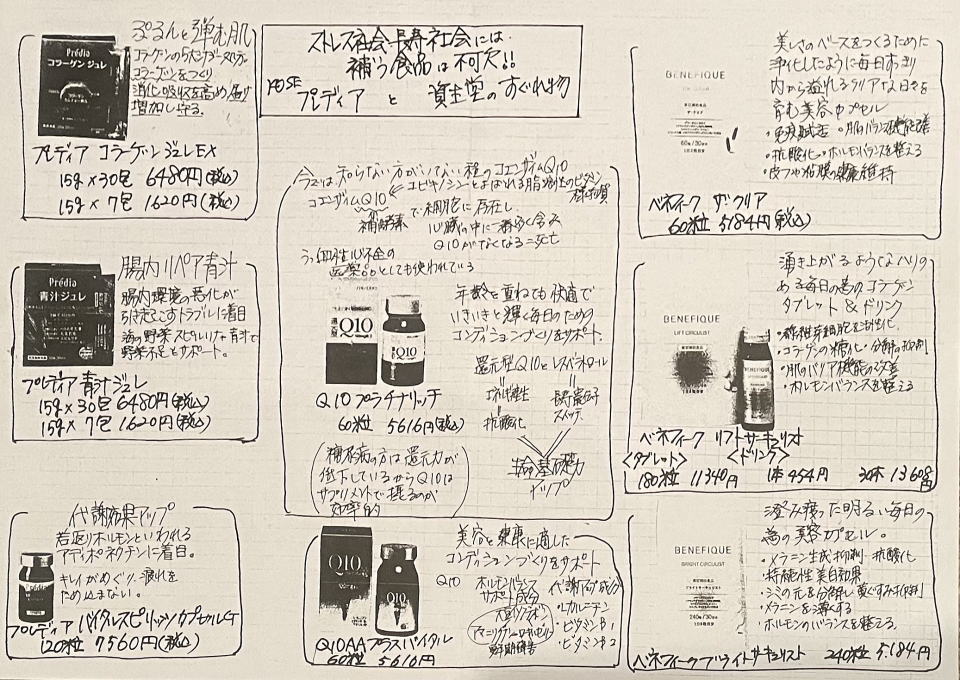 ストレス社会・長寿社会には、
補う食品は不可欠!!
KOSE プレディア と 資生堂のすぐれ物
ぷるんと弾む肌
Prédia
コラーゲン ジュレ
コラーゲンをつくり
消化吸収を高め
増加し守る。
プレディア コラーゲン ジュレEX
15g×30包 6480円(税込)
15g×7包 1620円(税込)
腸内リペア青汁
Prédia
青汁ジュレ
腸内環境の悪化が
引き起こすトラブルに着目
海の野菜スピルリナ+青汁で
野菜不足をサポート。
プレディア 青汁ジュレ
15g×30包 6480円(税込)
15g×7包 1620円(税込)
代謝効果アップ
若返りホルモンといわれる
アディポネクチンに着目。
キレイがめぐり、疲れを
ため込まない。
プレディア バイタルスピリッツカプセルG
120粒 7560円(税込)
今では知らない方がいない程のコエンザイムQ10
コエンザイムQ10 ← ユビキノンとよばれる脂溶性のビタミン様物質
補酵素 で細胞に存在し
心臓の中に一番多く含み
Q10がなくなる=死亡
うっ血性心不全の
医薬品としても使われている
Q10
Q10
年齢を重ねても快適で
いきいきと輝く毎日のための
コンディションづくりをサポート。
還元型Q10とレスベラトロール
抗酸化
長寿遺伝子
スイッチ
生命基礎力
アップ
Q10プラチナリッチ
60粒 5616円(税込)
(糖尿病の方は還元力が
低下しているからQ10は
サプリメントで摂るのが
効率的)
Q10
Q10
美容と健康に適した
コンディションづくりをサポート
Q10
ホルモンバランス
サポート成分
大豆イソフラボン
更年期障害
代謝UP成分
・Lカルニチン
・ビタミンB1
・ビタミンB2
Q10AAプラスバイタル
60粒 5616円
美しさのベースをつくるために
浄化したように毎日すっきり
内から溢れるクリアな日々を
育む美容カプセル
・免疫賦活 ・肌のバランス機能改善
・抗酸化 ・ホルモンバランスを整える
・皮フや粘膜の維持
BENEFIQUE
60粒/30日分
ベネフィーク ザ・クリア
60粒 5184円(税込)
湧き上がるようなハリの
ある毎日の為のコラーゲン
タブレット&ドリンク
・コラーゲンの糖化・分解の抑制
・肌のバリア機能の改善
・ホルモンバランスを整える
BENEFIQUE
LIFT CIRCULIST
BENEFIQUE
ベネフィーク リフトサーキュリスト
<タブレット> <ドリンク>
180粒 11340円 1本 454円 30本 13608円
澄み渡った明るい毎日の
為の美容カプセル。
・メラニン生成抑制・抗酸化
・持続性美白効果
・メラニンを薄くする
・ホルモンのバランスを整える。
BENEFIQUE
BRIGHT CIRCULIST
240粒/30日分
ベネフィークブライトサーキュリスト 240粒 5184円